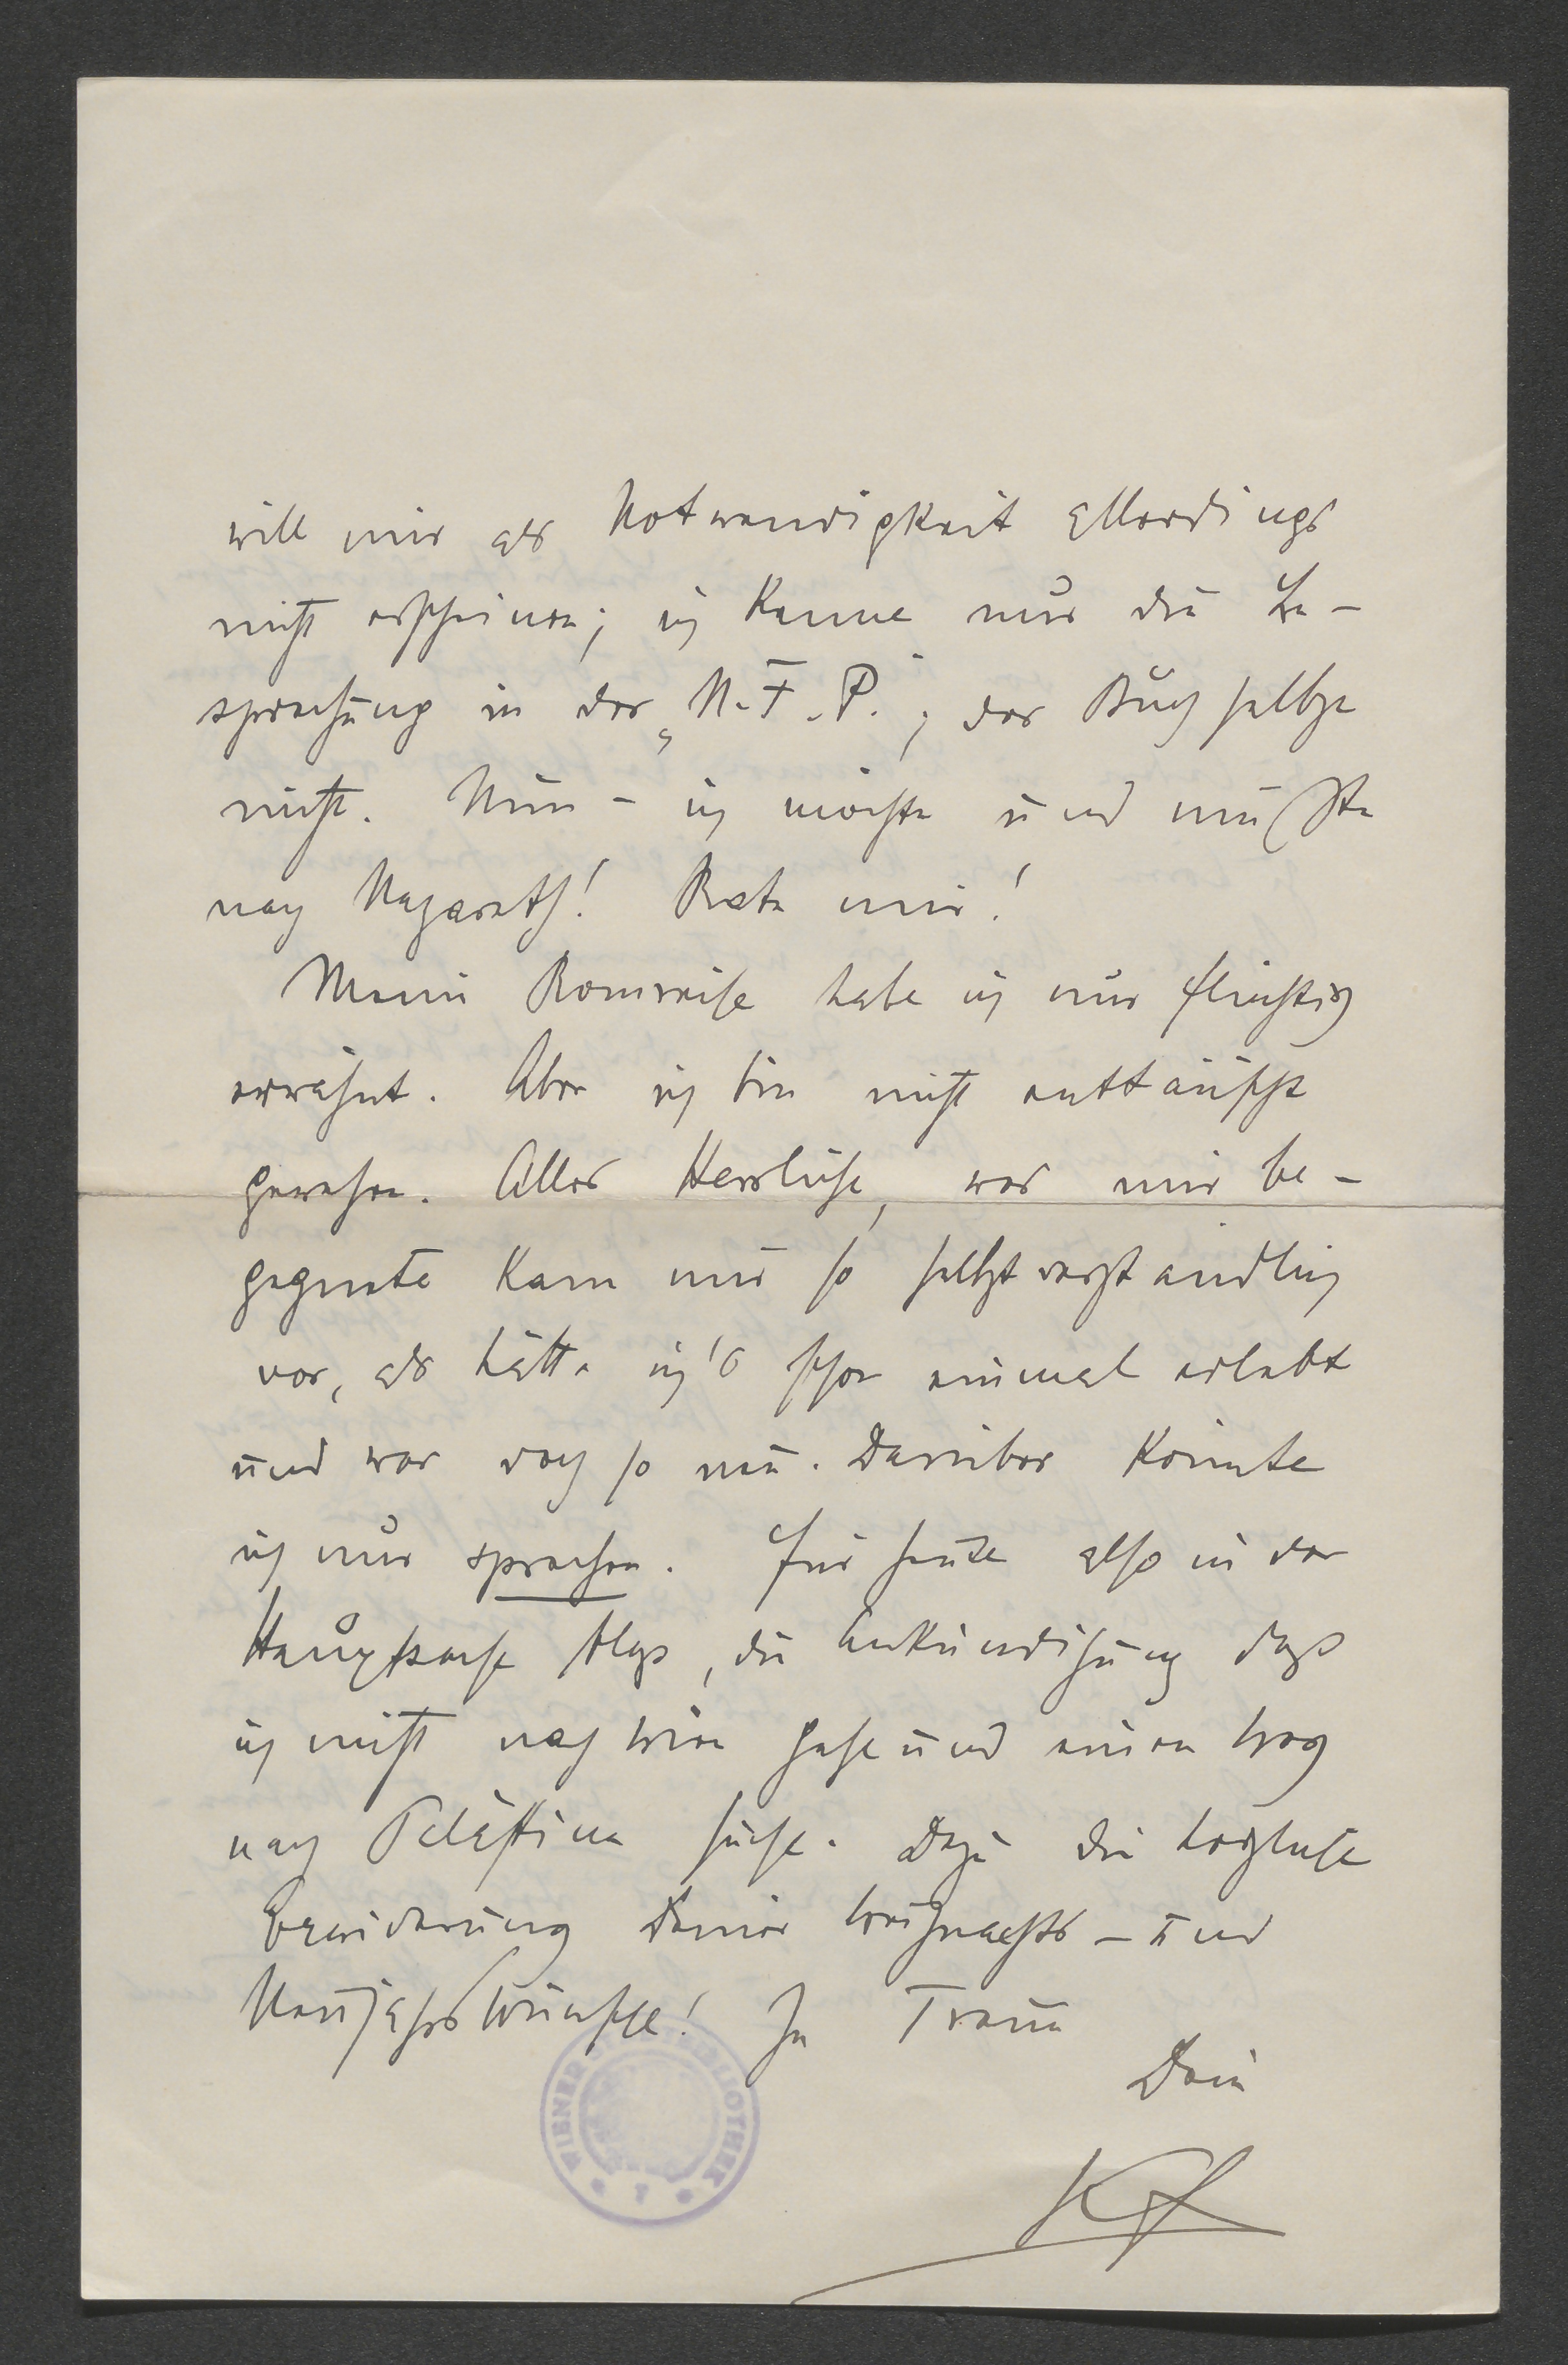 will mir als Notwendigkeit allerdings
nicht erscheinen; ich kenne nur die Be-
sprechung in der „N. F. P.", das Buch selbst
nicht. Nun – ich möchte und müsste
nach Nazareth! Rate mir!
Meine Romreise habe ich nur flüchtig
erwähnt. Aber ich bin nicht enttäuscht
gewesen. Alles Herrliche, was mir be-
gegnete kam mir so selbstverständlich
vor, als hätte ich's schon einmal erlebt
und war doch so neu. Darüber könnte
ich nur sprechen. Für heute also in der
Hauptsache, die Ankündigung dass
ich nicht nach Wien gehe und einen Weg
nach Palästina suche. Dazu die herzliche
Erwiderung Deiner Weihnachts- und
Neujahrswünsche! In Treue
Dein
WIENER BIBLIOTHEK